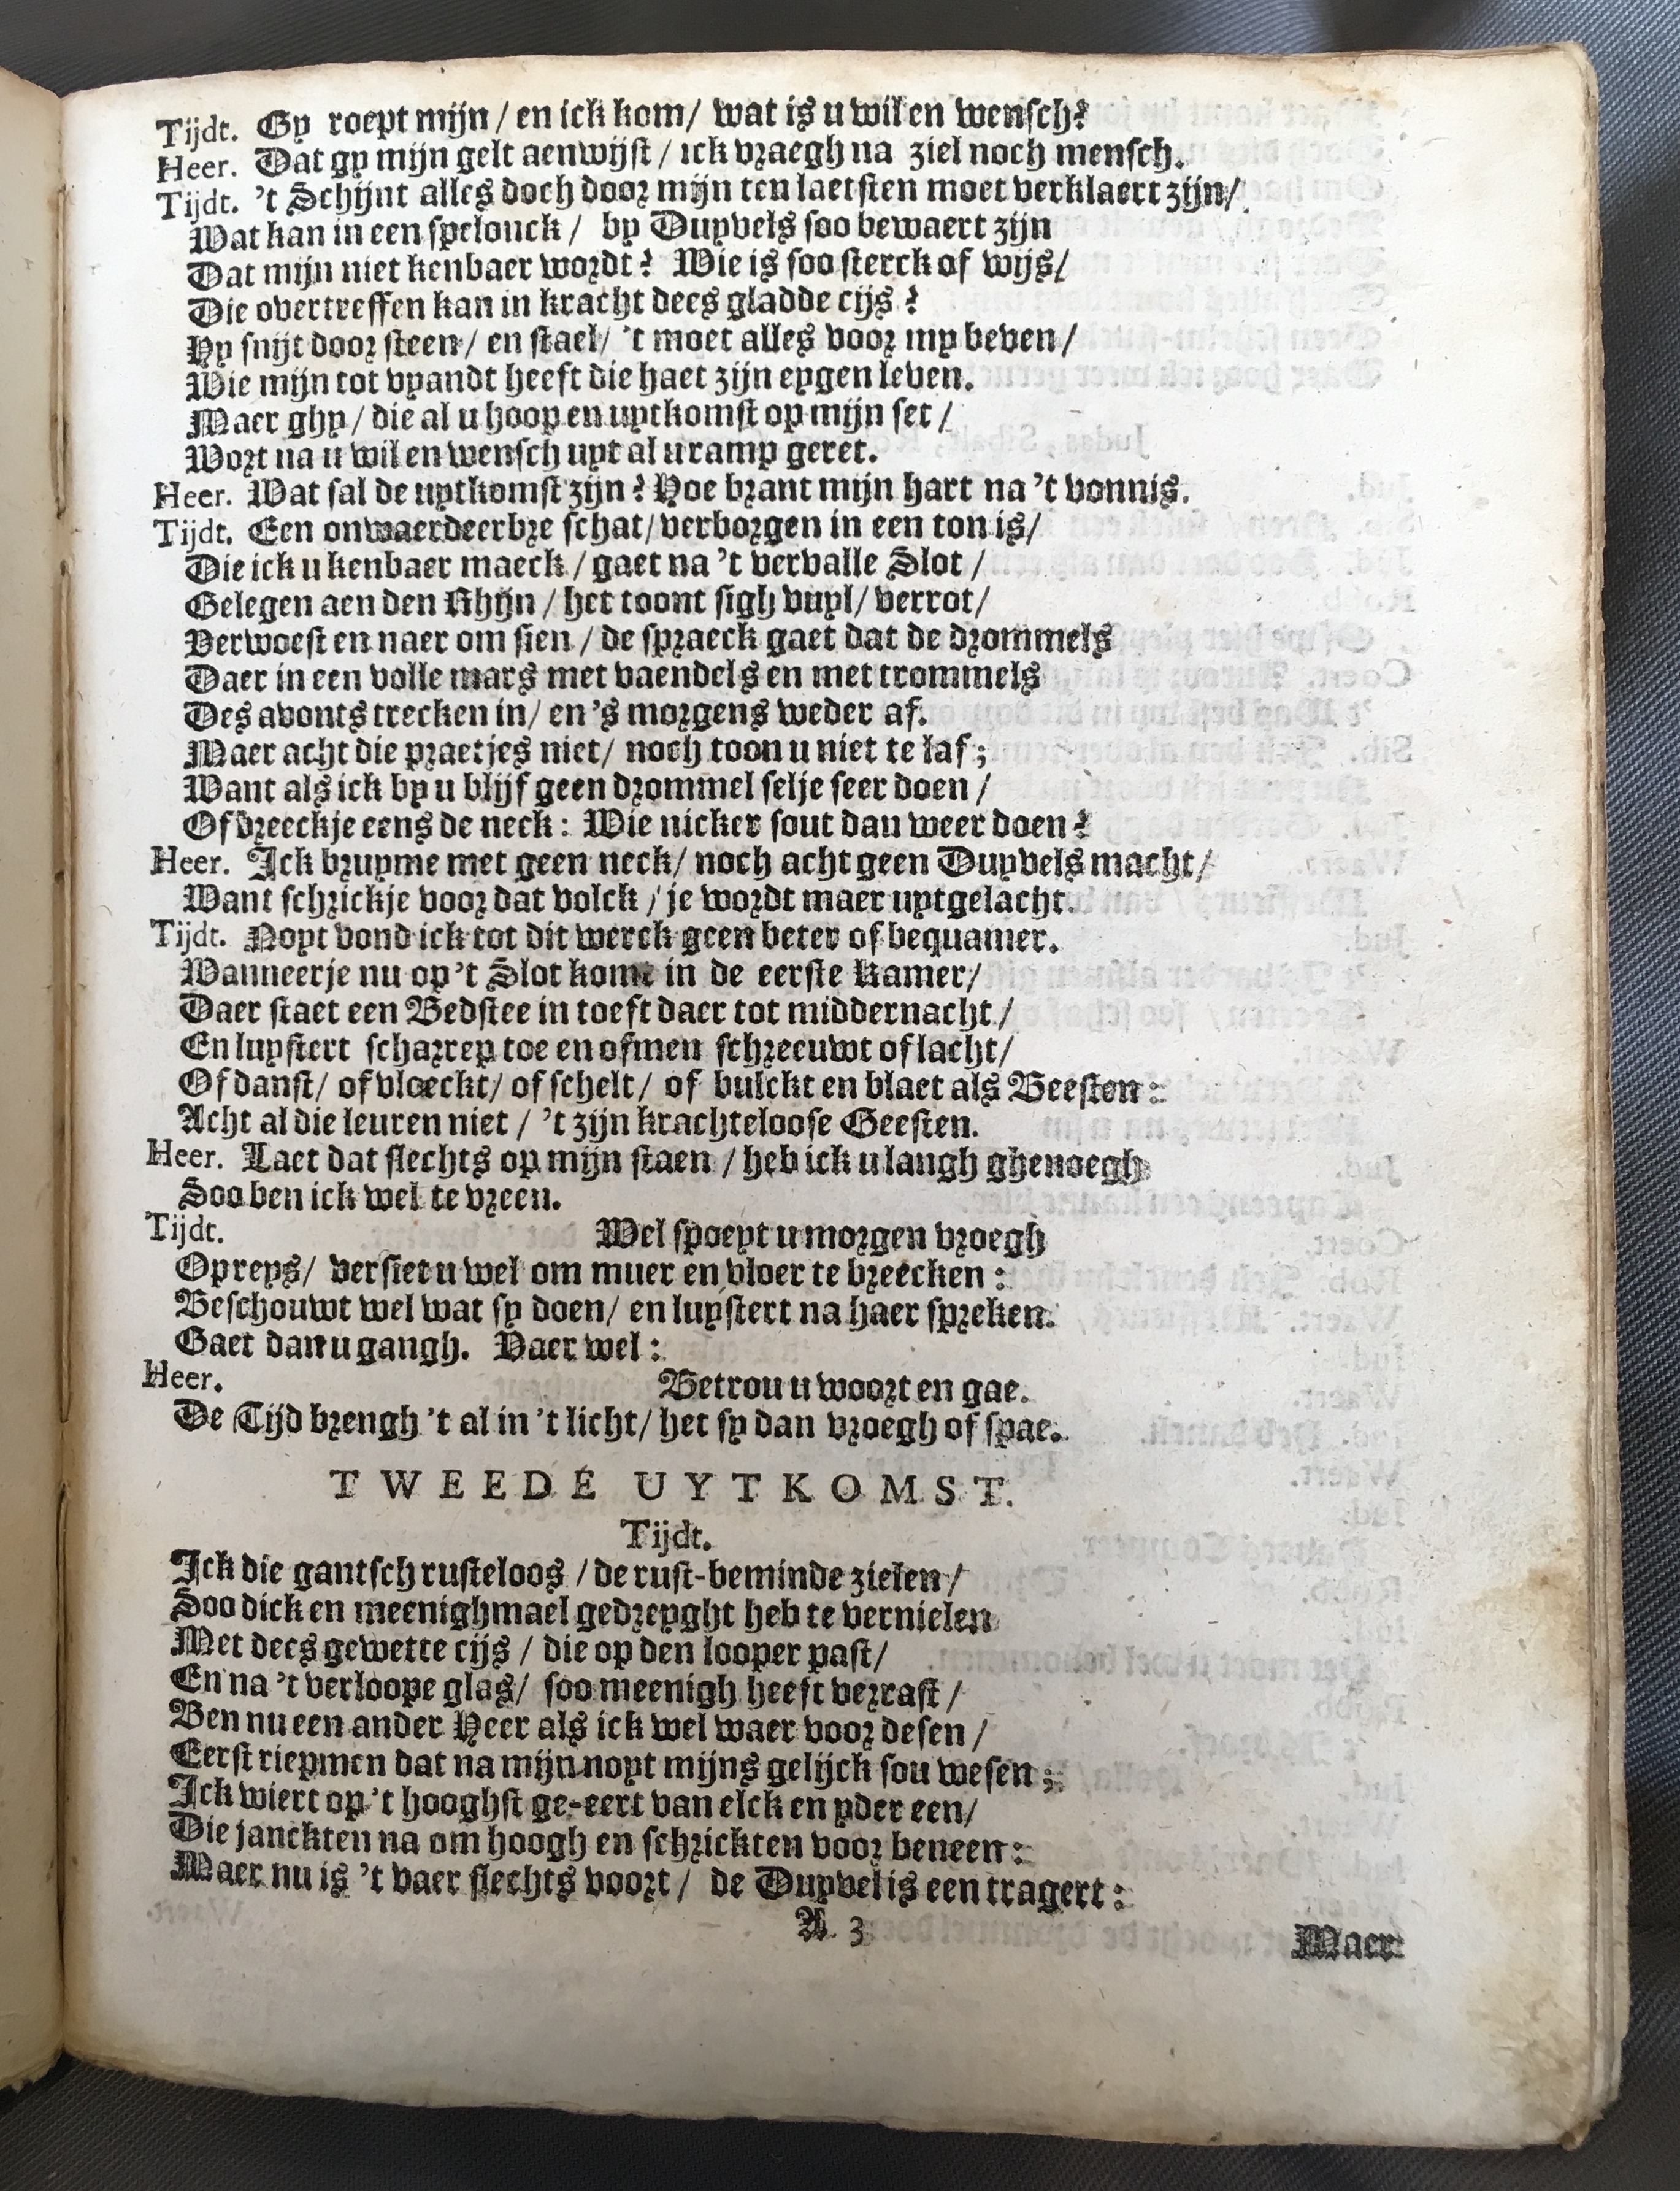 Tijdt. Gy roept mijn / en ick kom / wat is u wil en wensch?
Heer. Dat gy mijn gelt aenwijst / ick vraegh na ziel noch mensch.
Tijdt. 't Schijnt alles doch door mijn ten laetsten moet verklaert zijn /
Wat kan in een spelonck / by Duyvels soo bewaert zijn
Dat mijn niet kenbaer wordt? Wie is soo sterck of wijs /
Die overtreffen kan in kracht dees gladde cijs?
Hy snijt door steen / en stael / 't moet alles voor my beven /
Wie mijn tot vyandt heeft die haet zijn eygen leven.
Maer ghy / die al u hoop en uytkomst op mijn set /
Wort na u wil en wensch uyt al u ramp geret.
Heer. Wat sal de uytkomst zijn? Hoe brant mijn hart na 't vonnis.
Tijdt. Een onwaerdeerbre schat / verborgen in een ton is /
Die ick u kenbaer maeck / gaet na 't vervalle Slot /
Gelegen aen den Rhijn / het toont sigh vuyl / verrot /
Verwoest en naer om sien / de spraeck gaet dat de drommels
Daer in een volle mars met vaendels en met trommels
Des avonts trecken in / en 's morgens weder af.
Maer acht die praetjes niet / noch toon u niet te laf;
Want als ick by u blijf geen drommel selje seer doen /
Of breeckje eens de neck: Wie nicker sout dan weer doen?
Heer. Ick bruyme met geen neck / noch acht geen Duyvels macht /
Want schrickje voor dat volck / je wordt maer uytgelacht.
Tijdt. Noyt vond ick tot dit werck geen beter of bequamer.
Wanneerje nu op 't Slot komt in de eerste Kamer /
Daer staet een Bedstee in toeft daer tot middernacht /
En luystert scharrep toe en ofmen schreeuwt of lacht /
Of danst / of vloeckt / of schelt / of bulckt en blaet als Beesten:
Acht al die leuren niet / 't zijn krachteloose Geesten.
Heer. Laet dat slechts op mijn staen / heb ick u langh ghenoegh
Soo ben ick wel te vreen.
Tijdt. Wel spoeyt u morgen vroegh
Op reys / versiet u wel om muer en vloer te breecken:
Beschouwt wel wat sy doen / en luystert na haer spreken.
Gaet dan u gangh. Vaer wel:
Heer. Betrou u woort en gae.
De Tijd brengh 't al in 't licht / het sy dan vroegh of spae.
TWEEDE UYTKOMST.
Tijdt.
Ick die gantsch rusteloos / de rust-beminde zielen /
Soo dick en meenighmael gedreyght heb te vernielen
Met dees gewette cijs / die op den looper past /
En na 't verloope glas / soo meenigh heeft verrast /
Ben nu een ander Heer als ick wel waer voor desen /
Eerst riepmen dat na mijn noyt mijns gelijck sou wesen;
Ick wiert op 't hooghst ge-eert van elck en yder een /
Die janckten na om hoogh en schrickten voor beneen:
Maer nu is 't vaer slechts voort / de Duyvel is een tragert:
A 3
Maer